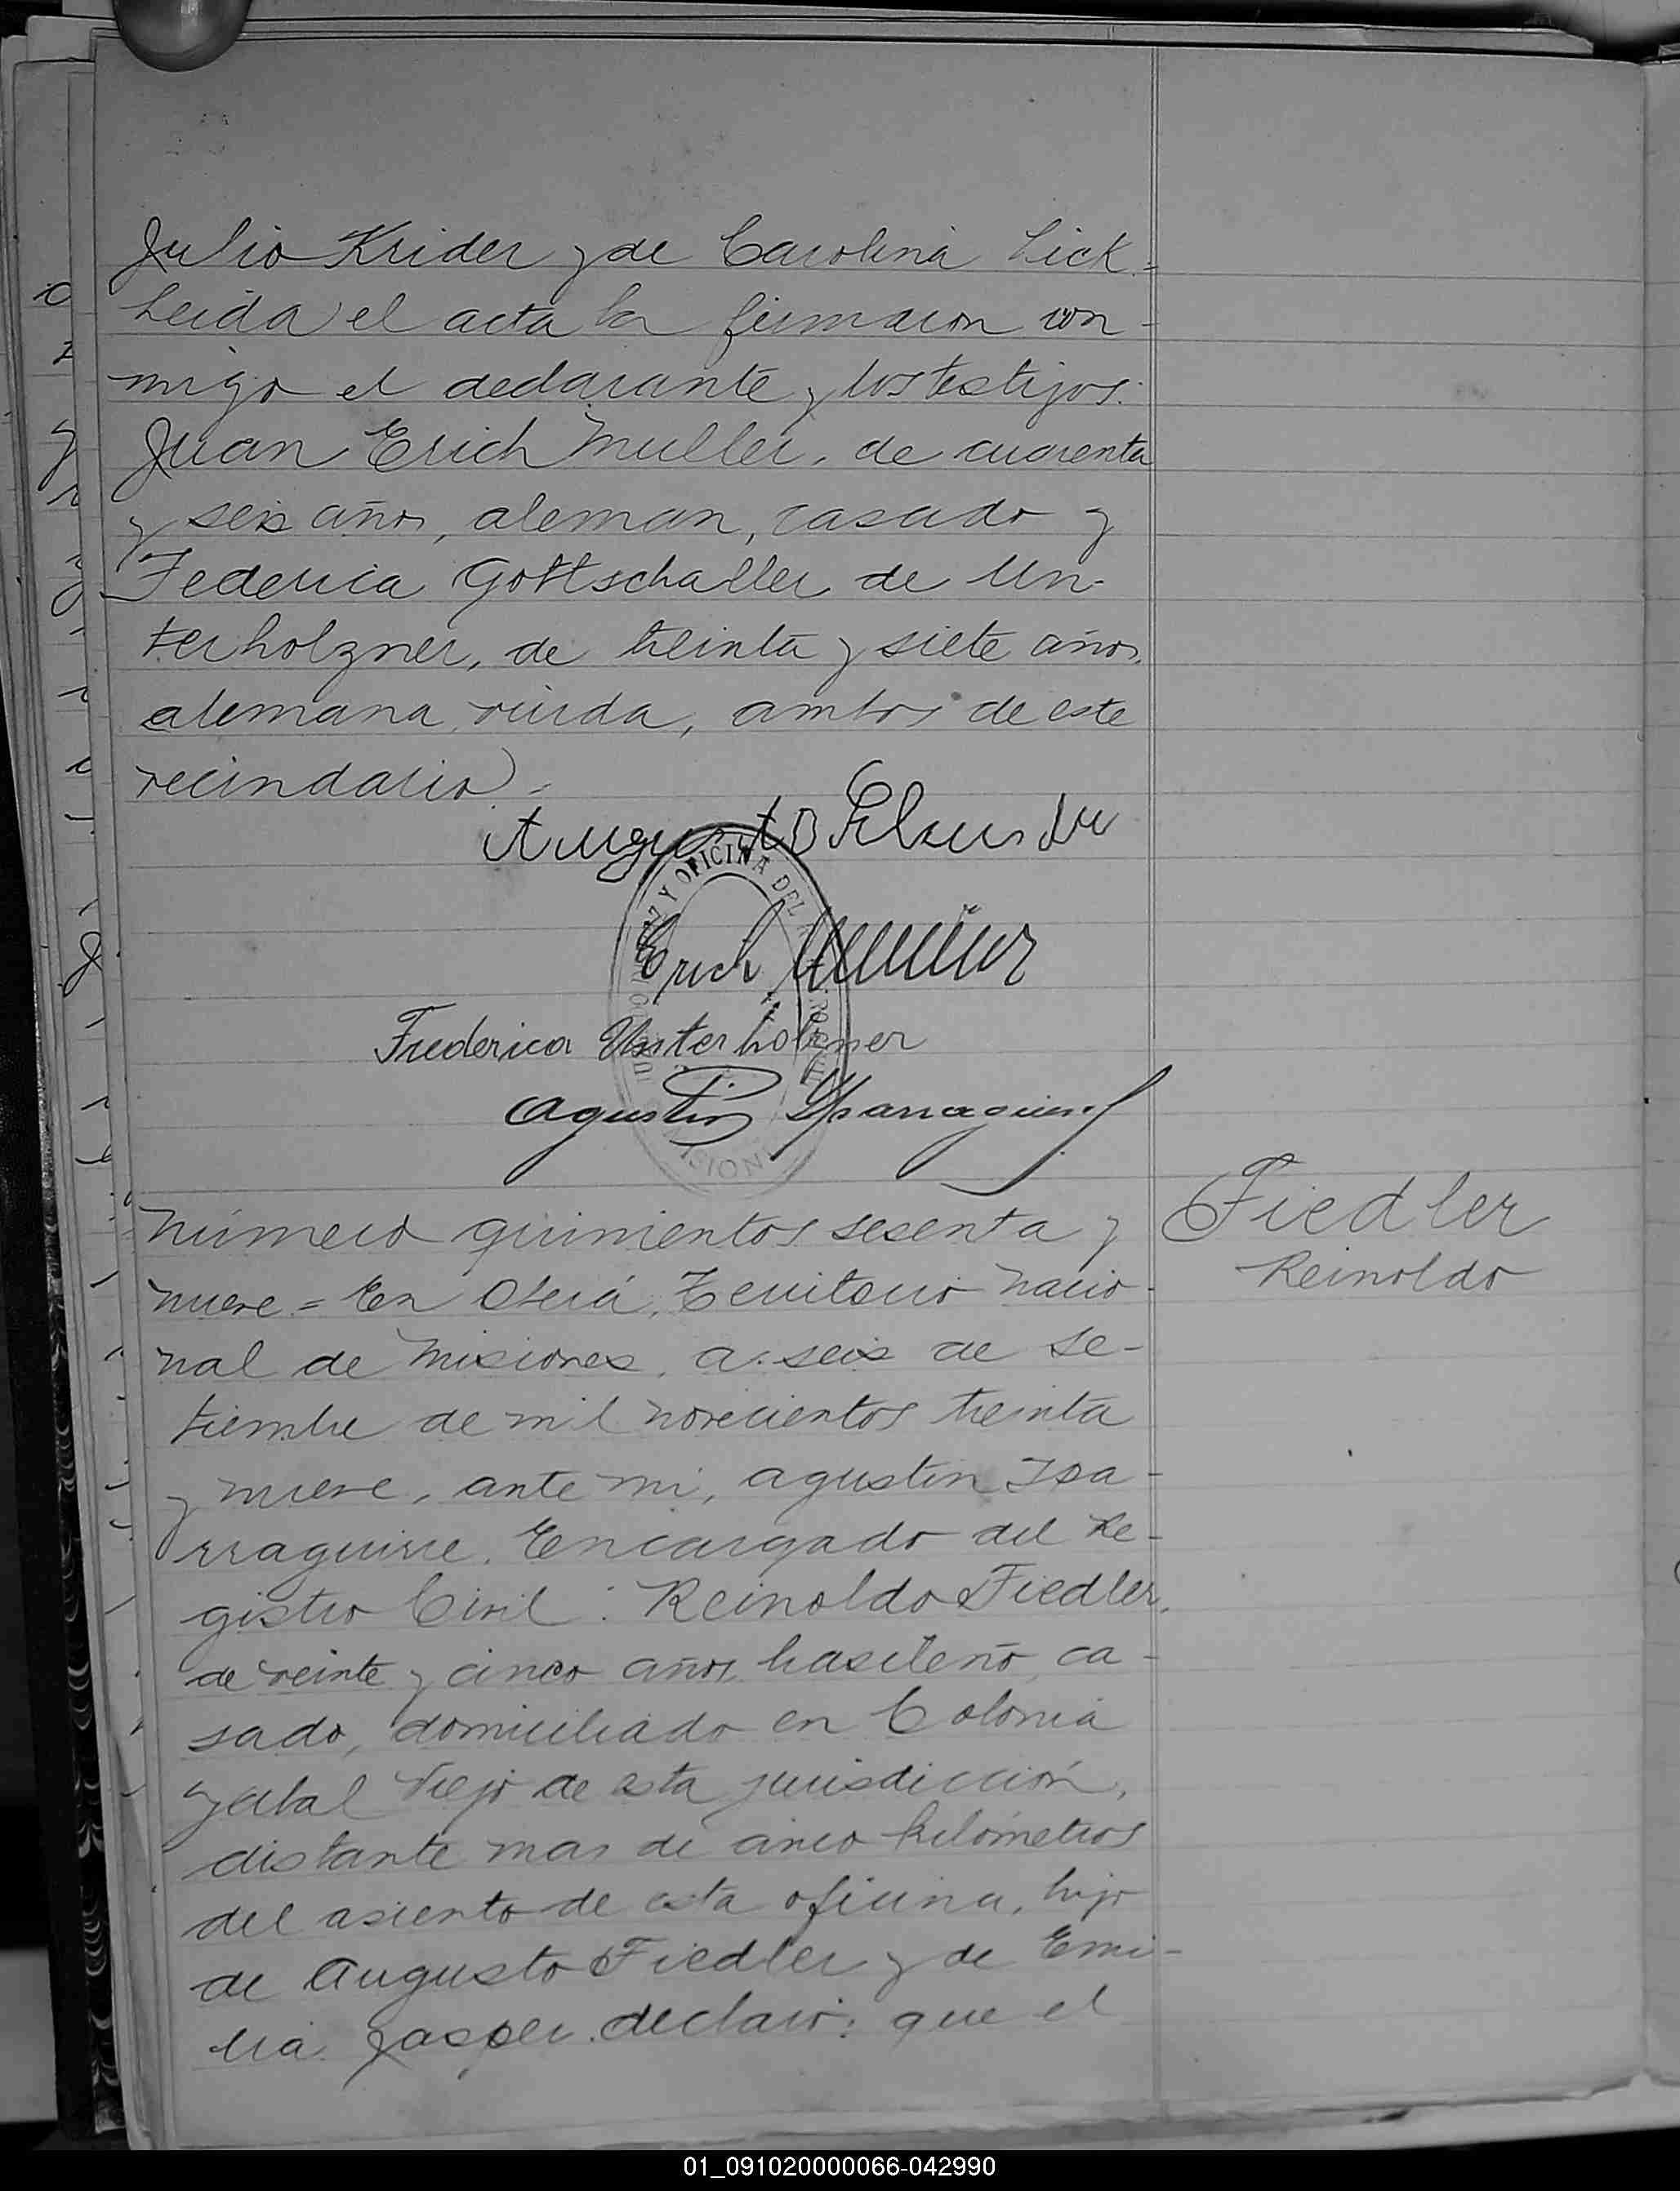 Julio Krider y de Carolina Lick =
Leida el acta la firmaron con-
migo el declarante y los testigos:
Juan Erich Muller, de cuarenta
y seis años, aleman, casado y
Federica Gottschaller de Un-
terholzner, de treinta y siete años,
alemana, viuda, ambos de este
vecindario =
Augusto
Erich Müller
Frederica Unterholzner
Agustin Yparraguirre
OFICINA DEL
Número quinientos sesenta y
nueve = En Oberá, Territorio Nacio-
nal de Misiones, a seis de Se-
tiembre de mil novecientos treinta
y nueve, ante mi, Agustin Ipa-
rraguirre, Encargado del Re-
gistro Civil: Reinoldo Fiedler,
de veinte y cinco años, brasileño, ca-
sado, domiciliado en Colonia
Yerbal Viejo de esta jurisdicción,
distante mas de cinco kilómetros
del asiento de esta oficina, hijo
de Augusto Fiedler y de Emi-
lia Jasper declaró: que el
Fiedler
Reinoldo
01_091020000066-042990